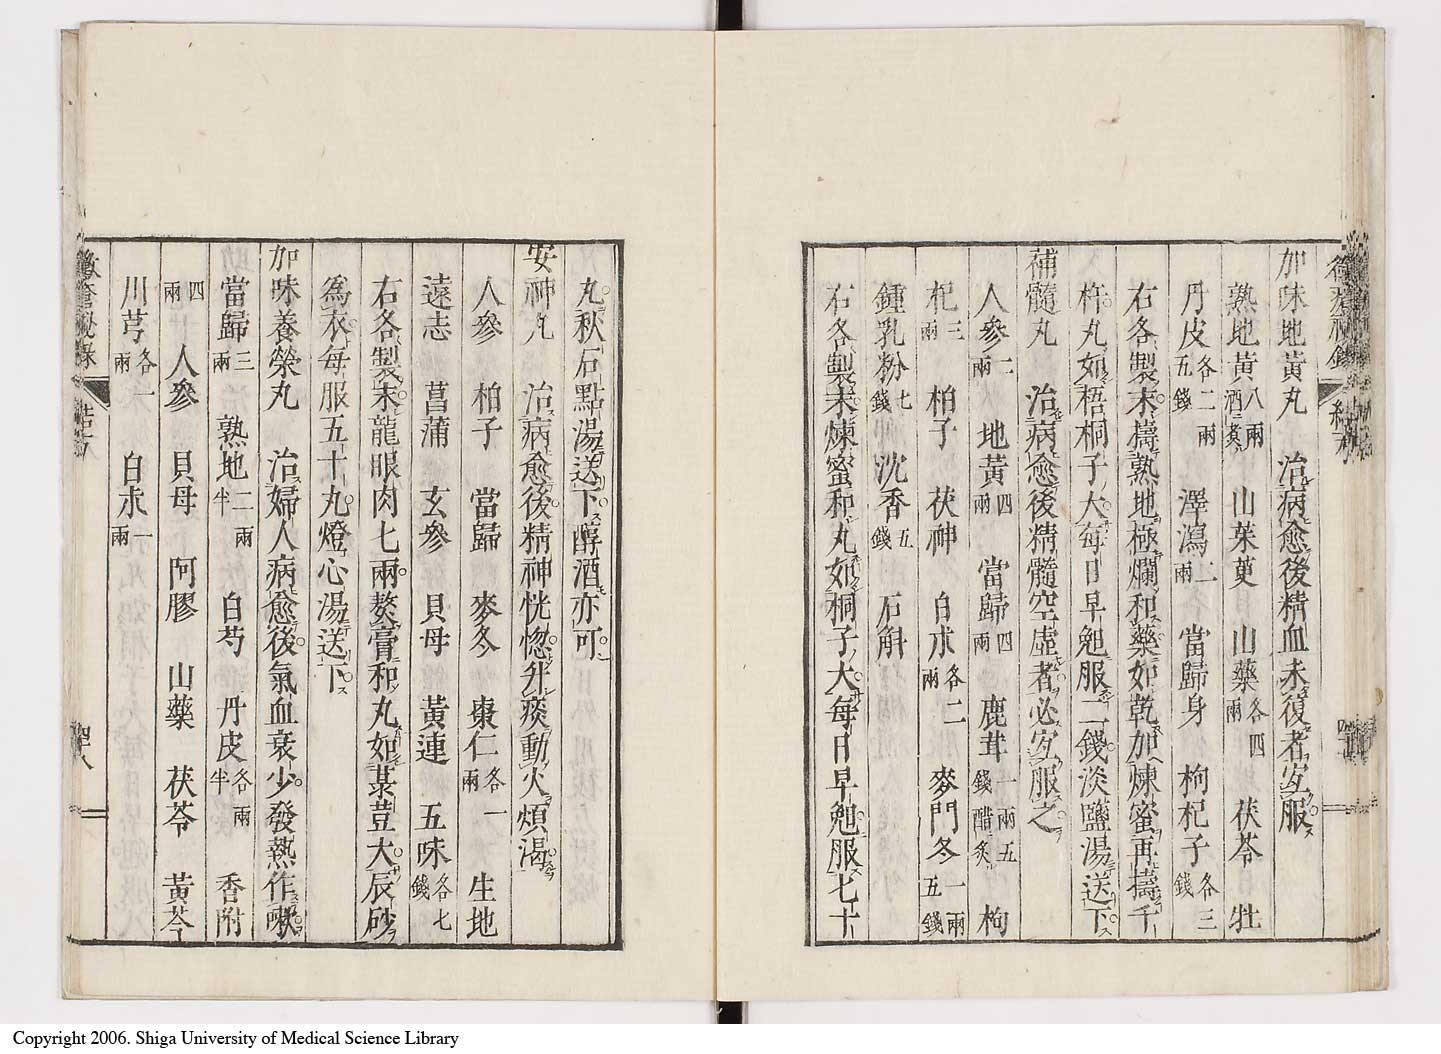 加味地黃丸　治病愈後精血未復者宜服
熟地黃八兩酒蒸　山茱萸　山藥各四兩　茯苓　牡
丹皮各二兩五錢　澤瀉二兩　當歸身　枸杞子各三錢
右各製末擣熟地極爛和藥如乾加煉蜜再擣千
杵丸如梧桐子大每日早勉服二錢淡鹽湯送下
補髓丸　治病愈後精髓空虛者必宜服之
人參二兩　地黃四兩　當歸四兩　鹿茸一兩五錢醋炙　枸
杞三兩　柏子　茯神　白朮各二兩　麥門冬一兩五錢
鍾乳粉七錢　沈香五錢　石斛
右各製末煉蜜和丸如桐子大每日早勉服七十
丸秋石點湯送下醇酒亦可
安神丸　治病愈後精神恍惚并痰動火煩渴
人參　柏子　當歸　麥冬　棗仁各一兩　生地
遠志　菖蒲　玄參　貝母　黃連　五味各七錢
右各製末龍眼肉七兩熬膏和丸如菉荳大辰砂
為衣每服五十丸燈心湯送下
加味養榮丸　治婦人病愈後氣血衰少發熱作嗽
當歸三兩　熟地二兩半　白芍　丹皮各兩半　香附
四兩　人參　貝母　阿膠　山藥　茯苓　黃芩
川芎各一兩　白朮一兩
黴瘡秘錄
四十八
Copyright 2006. Shiga University of Medical Science Library